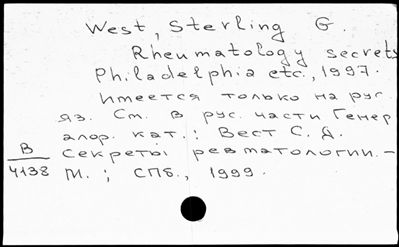 West, Sterling G.
Rheumatology secrets
Philadelphia etc., 1997.
Имеется только на рус.
яз. См. в рус. части Генер.
алф. кат.: Вест С. Д.
Секреты ревматологии. -
М.; СПб., 1999.
В
4138